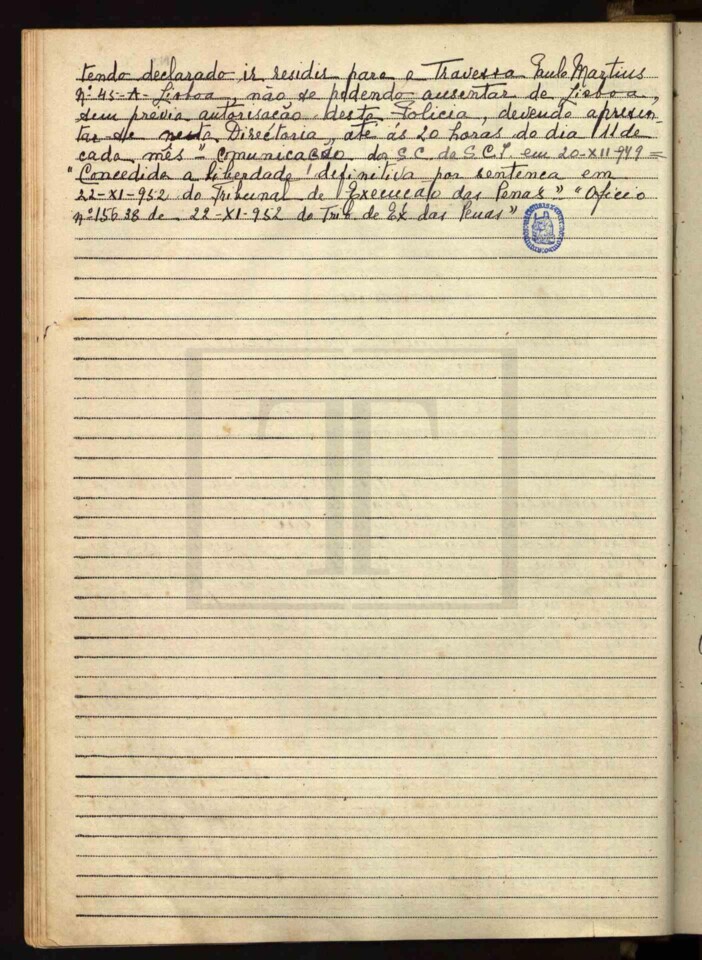 tendo declarado ir residir para a Travessa Paulo Martins
nº 45-A- Lisboa, não se podendo ausentar de Lisboa,
sem prévia autorisação desta Policia, devendo apresen-
tar-se nesta Directoria, até ás 20 horas do dia 11 de
cada mês" comunicação da S.C. da S.C.P. em 20-XII-949=
"Concedida a liberdade definitiva por sentença em
22-XI-952 do Tribunal de Execução das Penas" "Oficio
nº 15638 de 22-XI-952 do Trib. de Ex. das Penas"